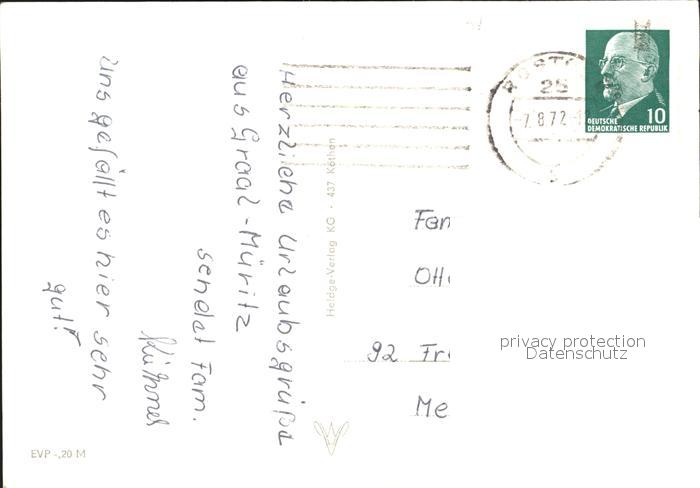 Herzliche Urlaubsgrüße
aus Graal-Müritz
sendet Fam.
Uns gefällt es hier sehr
gut!
Heldge-Verlag KG · 437 Köthen
EVP -,20 M
25
7.8.72
10
DEUTSCHE
DEMOKRATISCHE REPUBLIK
Fam
Otto
92 Fr
Me
privacy protection
Datenschutz